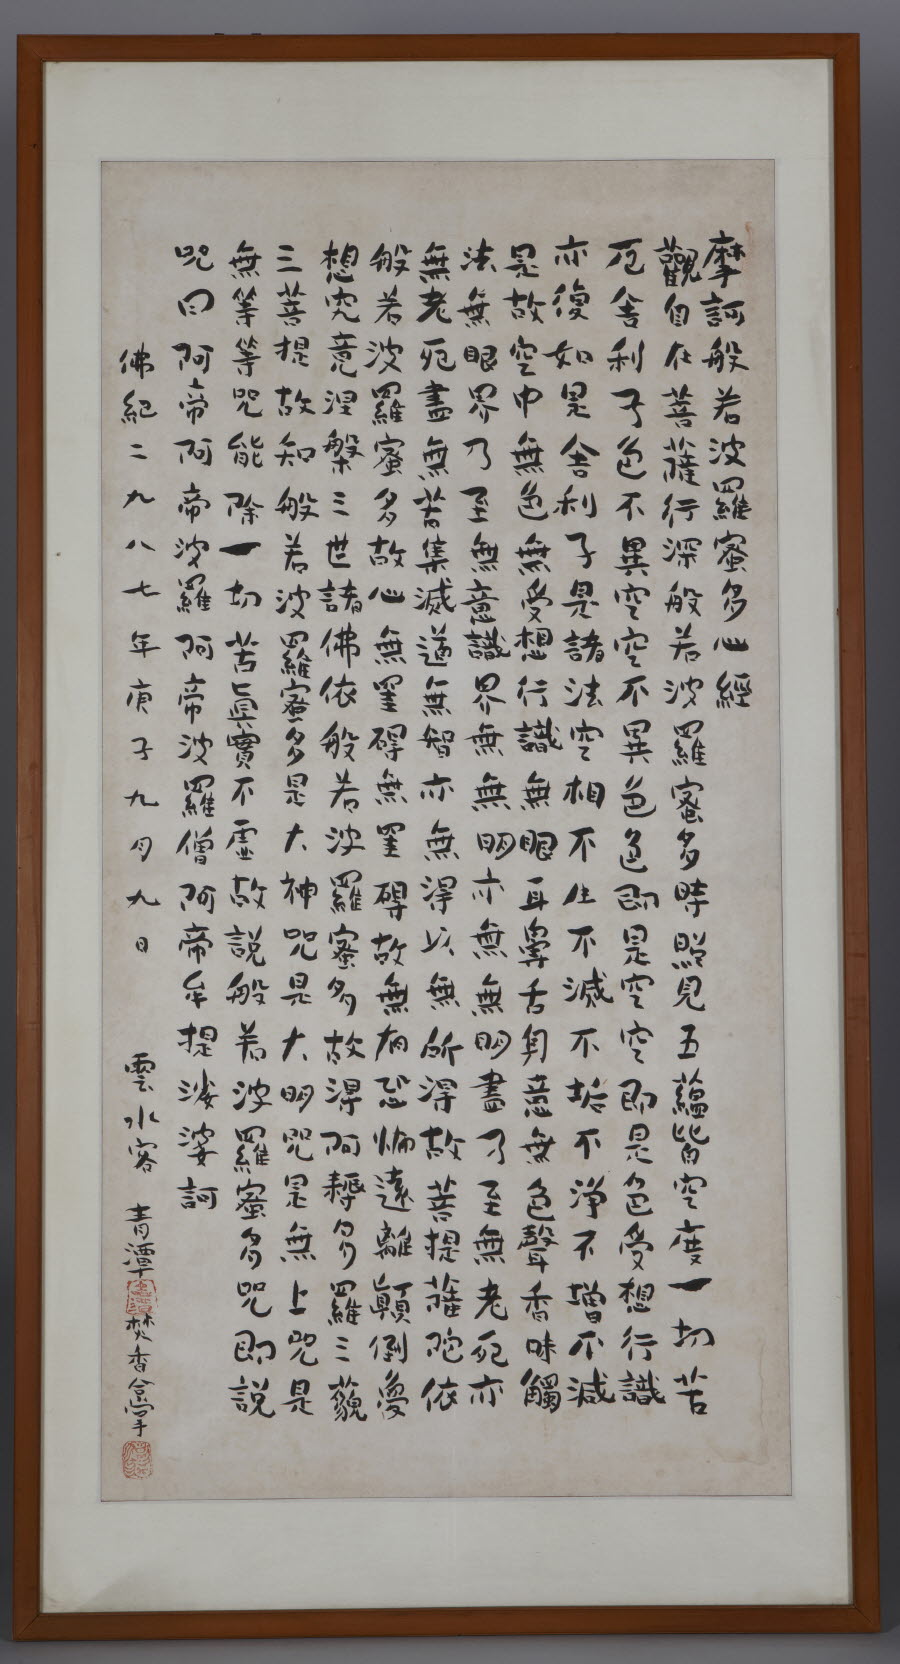 摩訶般若波羅蜜多心經
觀自在菩薩行深般若波羅蜜多時照見五蘊皆空度一切苦
厄舍利子色不異空空不異色色卽是空空卽是色受想行識
亦復如是舍利子是諸法空相不生不滅不垢不淨不增不減
是故空中無色無受想行識無眼耳鼻舌身意無色聲香味觸
法無眼界乃至無意識界無無明亦無無明盡乃至無老死亦
無老死盡無苦集滅道無智亦無得以無所得故菩提薩陀依
般若波羅蜜多故心無罣碍無罣碍故無有恐怖遠離顚倒夢
想究竟涅槃三世諸佛依般若波羅蜜多故得阿耨多羅三藐
三菩提故知般若波羅蜜多是大神呪是大明呪是無上呪是
無等等呪能除一切苦眞實不虛故說般若波羅蜜多呪卽說
呪曰阿帝阿帝波羅阿帝波羅僧阿帝牟提婆婆訶
佛紀二九八七年庚子九月九日 雲水客 青潭 焚香合掌